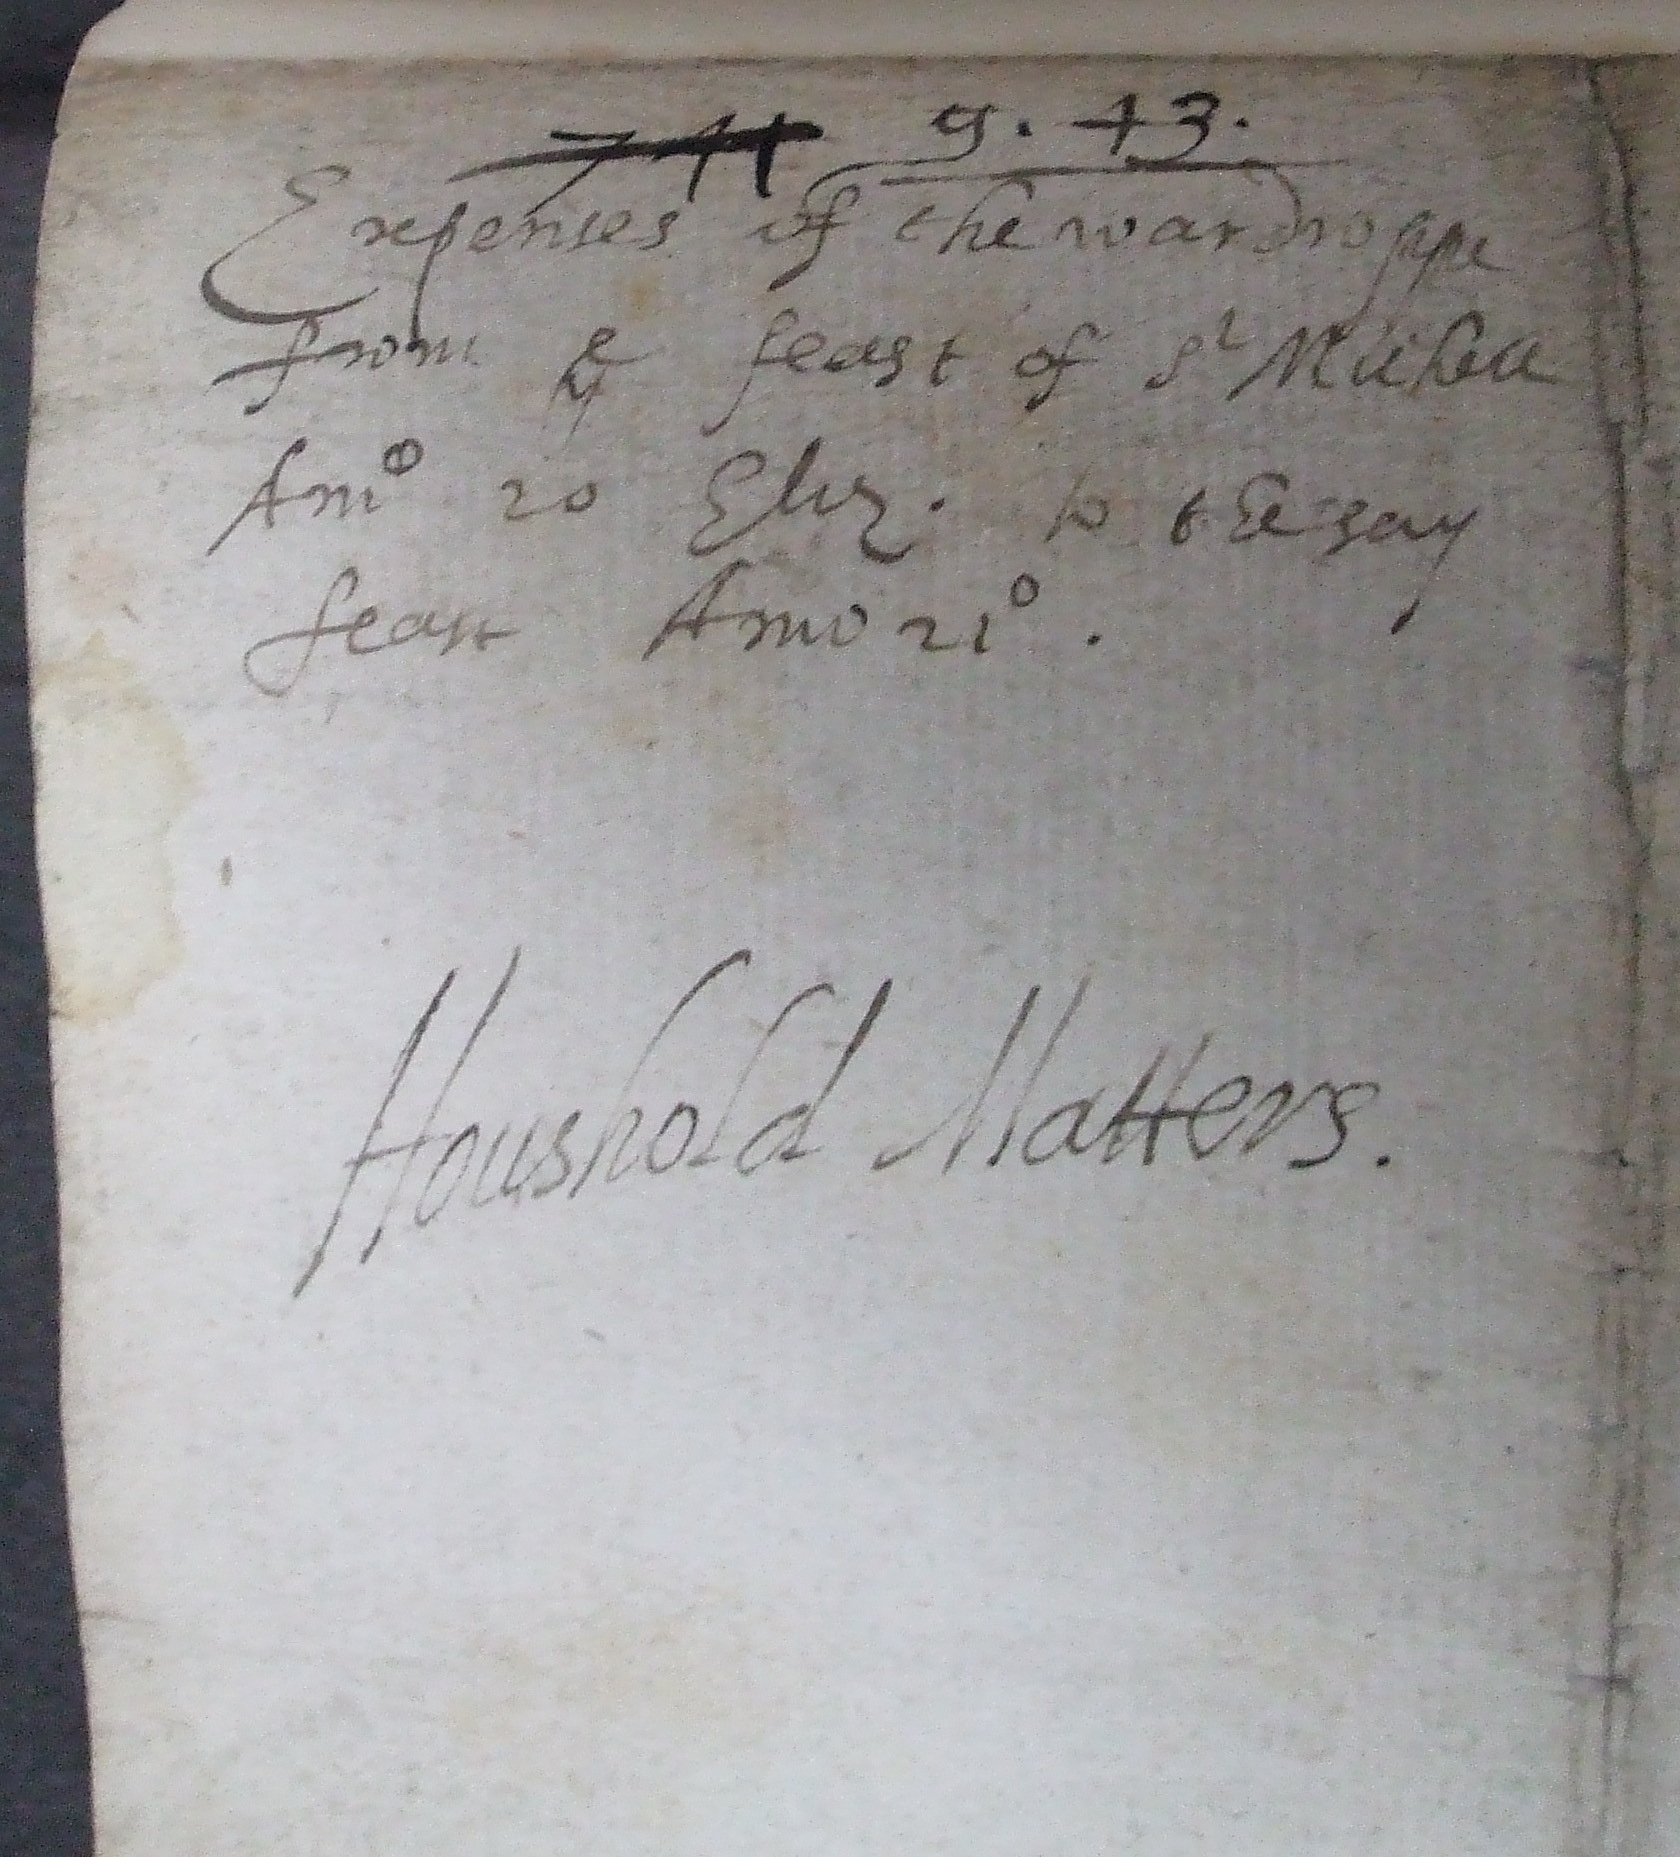 9. 43.
Expenses of the wardroppe
from ye feast of St Michell
Anno 20 Eliz. to the say
feast Anno 21o.
Houshold Matters.